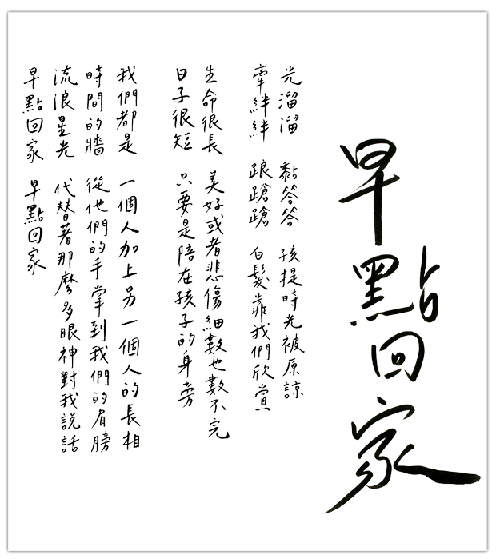 早點回家
光溜溜 黏答答 孩提時光被原諒
牽絆絆 踉蹌蹌 白髮靠我們欣賞
生命很長 美好或者悲傷細數也數不完
日子很短 只要是陪在孩子的身旁
我們都是 一個人加上另一個人的長相
時間的牆 從他們的手掌到我們的肩膀
流浪星光 代替著那麼多眼神對我說話
早點回家 早點回家